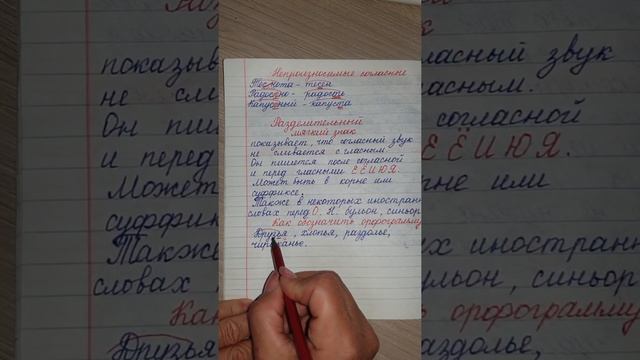 Непроизносимые согласные
Теснота - тесен
Радостно - радости
Капустный - капуста
Разделительный
мягкий знак
показывает, что согласный звук
не сливается с гласным.
Он пишется после согласной
и перед гласными Е Ё И Ю Я.
Может быть в корне или
суффиксе.
Также в некоторых иностран
словах перед О. Н. бульон, синьор
Как обозначить орфограмму
Друзья, хлопья, раздолье,